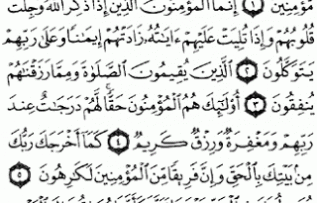 مُّؤْمِنِينَ ۝١ إِنَّمَا ٱلْمُؤْمِنُونَ ٱلَّذِينَ إِذَا ذُكِرَ ٱللَّهُ وَجِلَتْ
قُلُوبُهُمْ وَإِذَا تُلِيَتْ عَلَيْهِمْ ءَايَـٰتُهُۥ زَادَتْهُمْ إِيمَـٰنًا وَعَلَىٰ رَبِّهِمْ
يَتَوَكَّلُونَ ۝٢ ٱلَّذِينَ يُقِيمُونَ ٱلصَّلَوٰةَ وَمِمَّا رَزَقْنَـٰهُمْ
يُنفِقُونَ ۝٣ أُو۟لَـٰٓئِكَ هُمُ ٱلْمُؤْمِنُونَ حَقًّا ۚ لَّهُمْ دَرَجَـٰتٌ عِندَ
رَبِّهِمْ وَمَغْفِرَةٌ وَرِزْقٌ كَرِيمٌ ۝٤ كَمَآ أَخْرَجَكَ رَبُّكَ
مِنۢ بَيْتِكَ بِٱلْحَقِّ وَإِنَّ فَرِيقًا مِّنَ ٱلْمُؤْمِنِينَ لَكَـٰرِهُونَ ۝٥